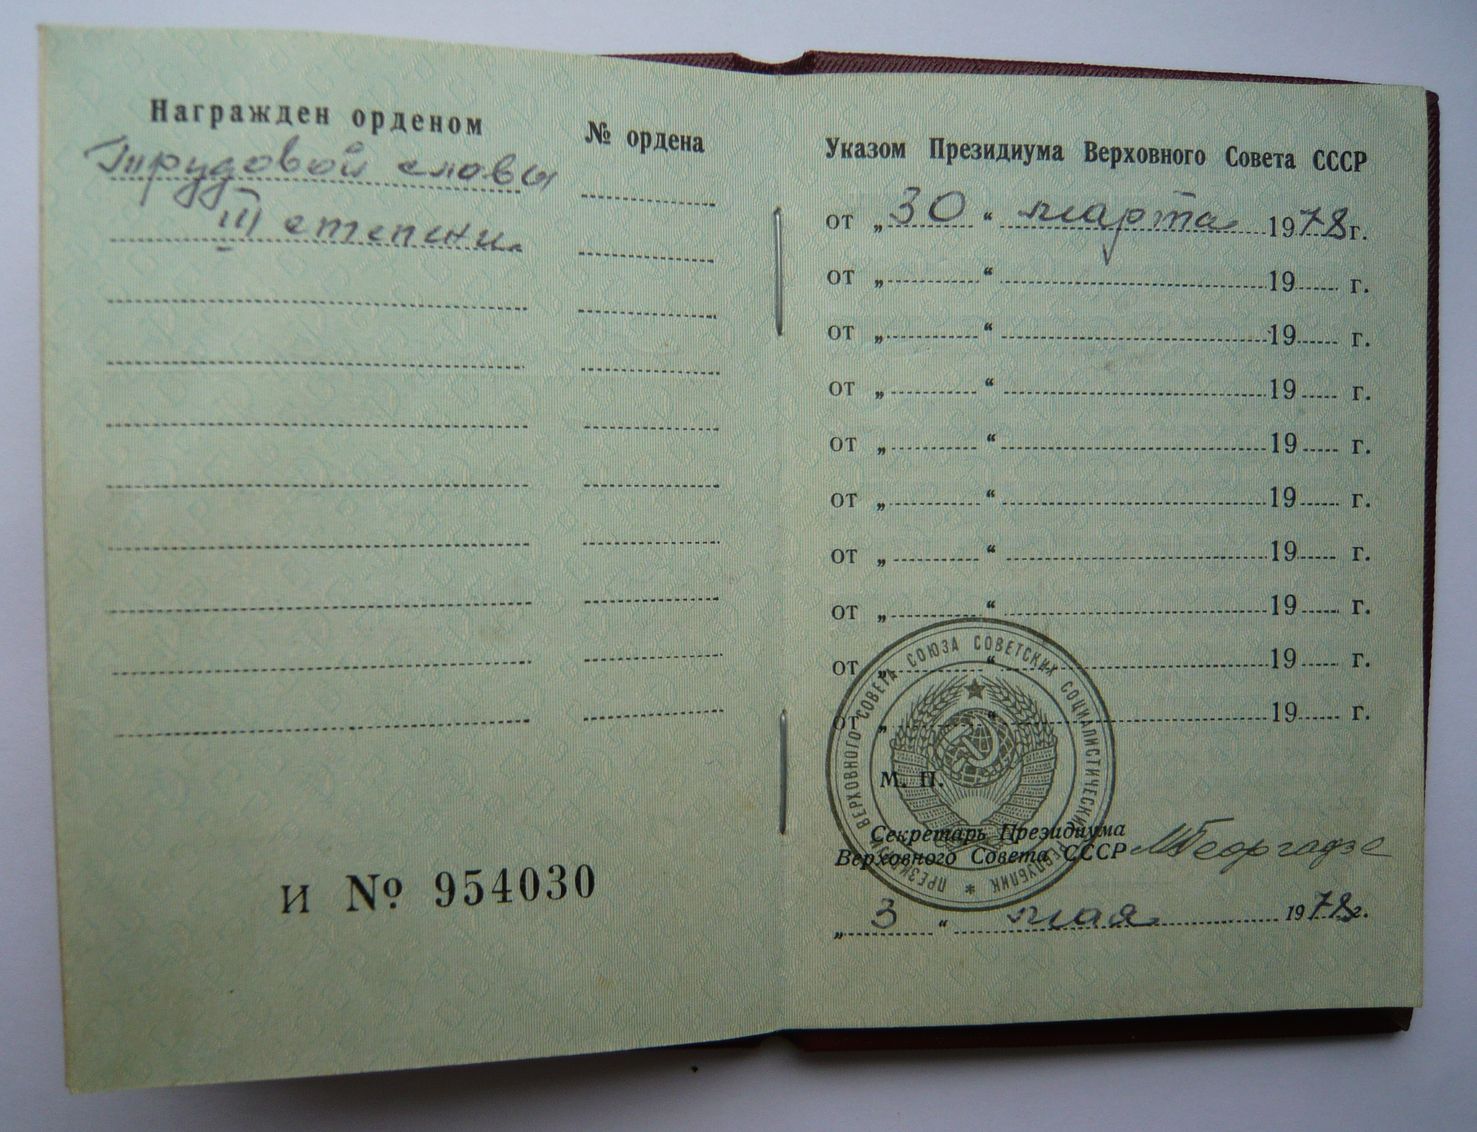 Награжден орденом
№ ордена
Трудовой славы
III степени
И № 954030
Указом Президиума Верховного Совета СССР
от „ 30 “ марта 1978 г.
от „ “ 19 г.
от „ “ 19 г.
от „ “ 19 г.
от „ “ 19 г.
от „ “ 19 г.
от „ “ 19 г.
от „ “ 19 г.
от „ “ 19 г.
от „ “ 19 г.
ПРЕЗИДИУМ ВЕРХОВНОГО СОВЕТА СОЮЗА СОВЕТСКИХ СОЦИАЛИСТИЧЕСКИХ РЕСПУБЛИК *
М. П.
Секретарь Президиума
Верховного Совета СССР М Георгадзе
„ 3 “ мая 1978 г.